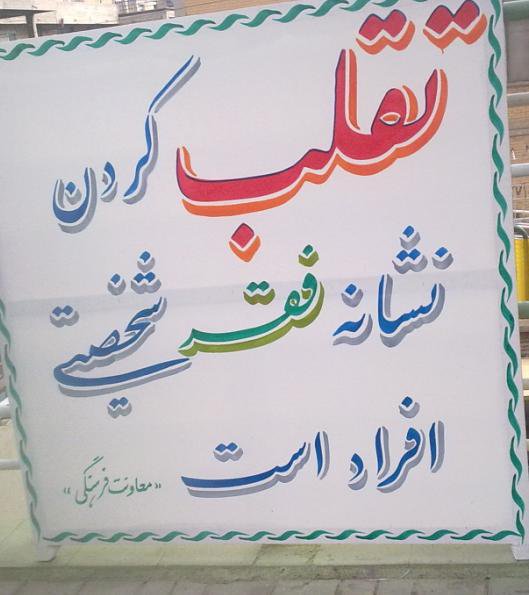 تقلب کردن
نشانه فقر شخصیتی
افراد است
«معاونت فرهنگی»